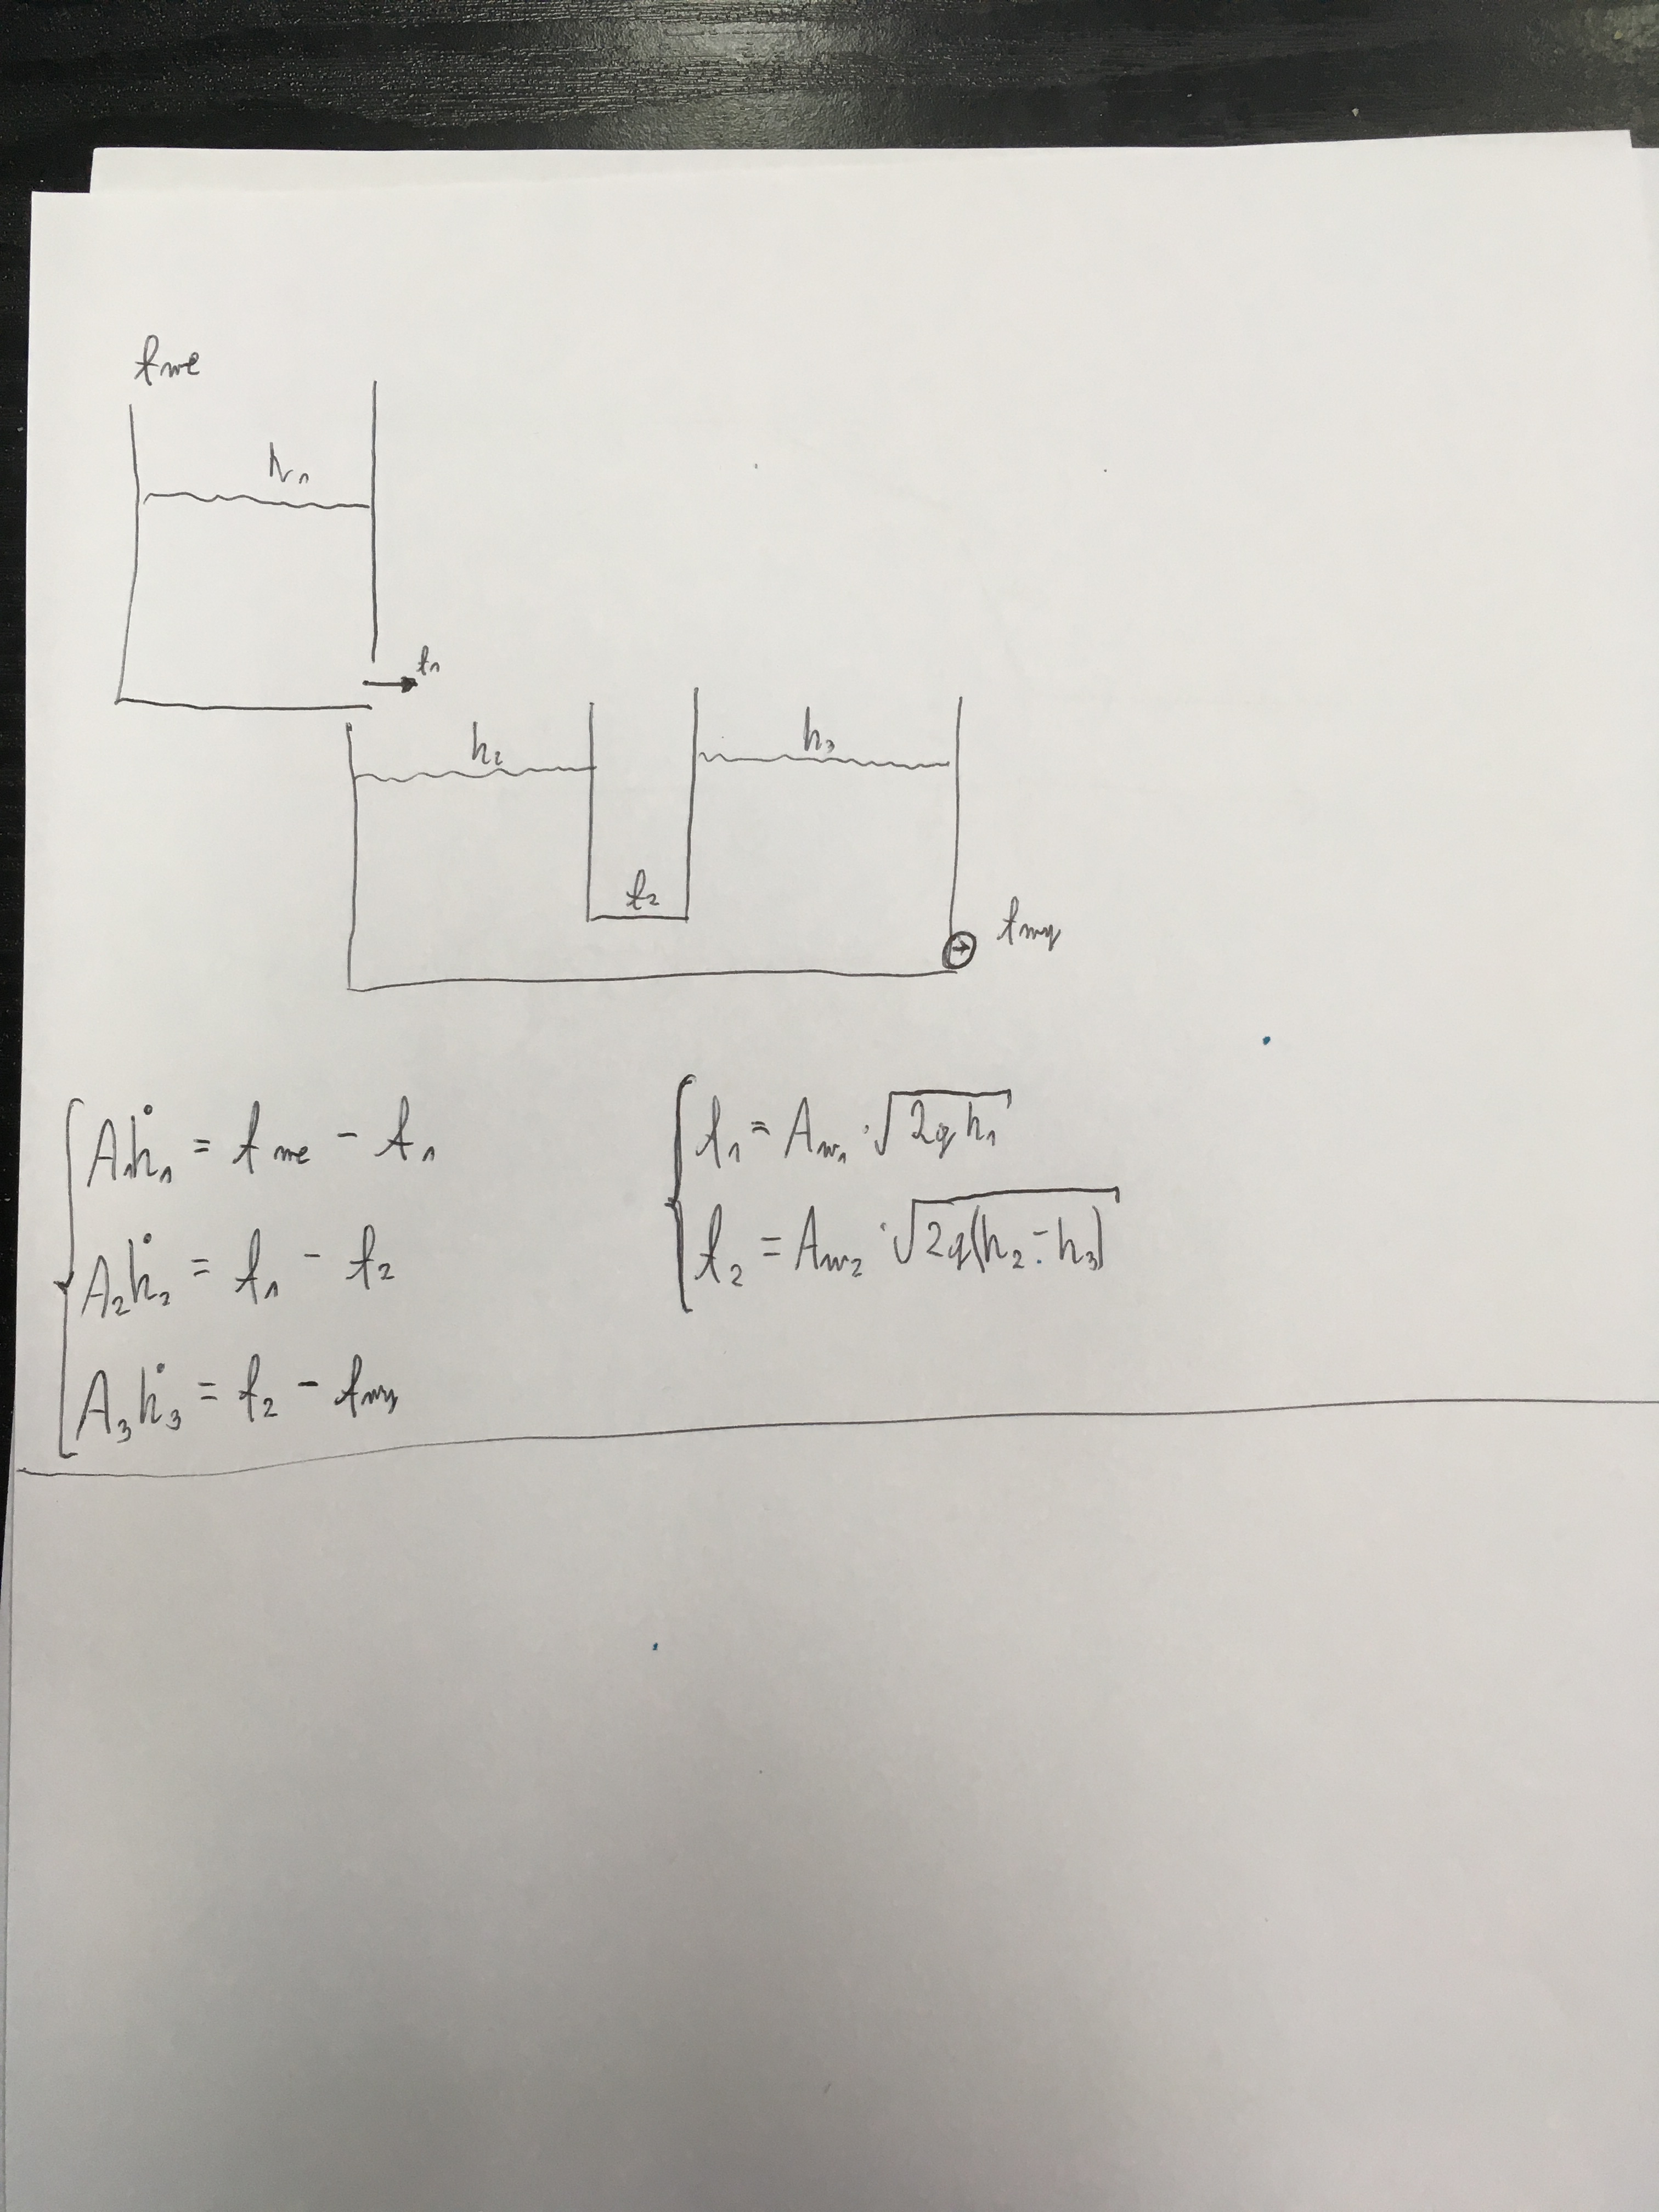 fwe
h₁
f₁
h₂
h₃
f₂
fwy
A₁ḣ₁ = fwe - f₁
A₂ḣ₂ = f₁ - f₂
A₃ḣ₃ = f₂ - fwy
f₁ = Aw₁ · √2gh₁
f₂ = Aw₂ · √2g(h₂-h₃)